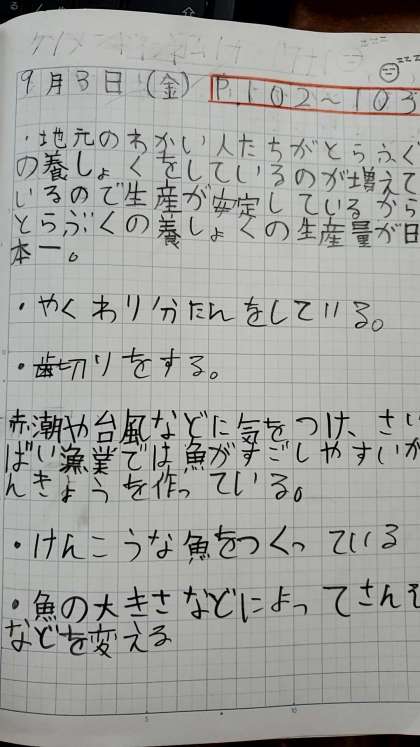 9月3日(金) P.102～103
・地元のわかい人たちがとらふぐ
の養しょくをしているのが増えて
いるので生産が安定しているから
とらふぐの養しょくの生産量が日
本一。
・やくわり分たんをしている。
・歯切りをする。
赤潮や台風などに気をつけ、さい
ばい漁業では魚がすごしやすいか
んきょうを作っている。
・けんこうな魚をつくっている
・魚の大きさなどによってさんそ
などを変える